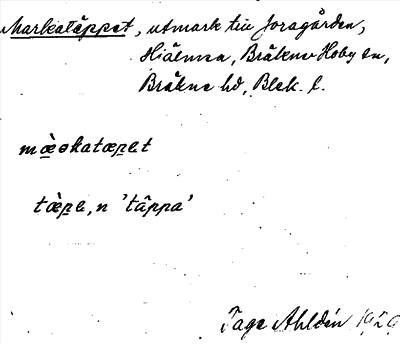 Markatäppet, utmark till Joragården,
Hjälmsa, Bräkne Hoby sn,
Bräkne hd, Blek. l.
mæ̀ɵkatæpet
tæ̀pe, n 'täppa'
Tage Ahldén 1929